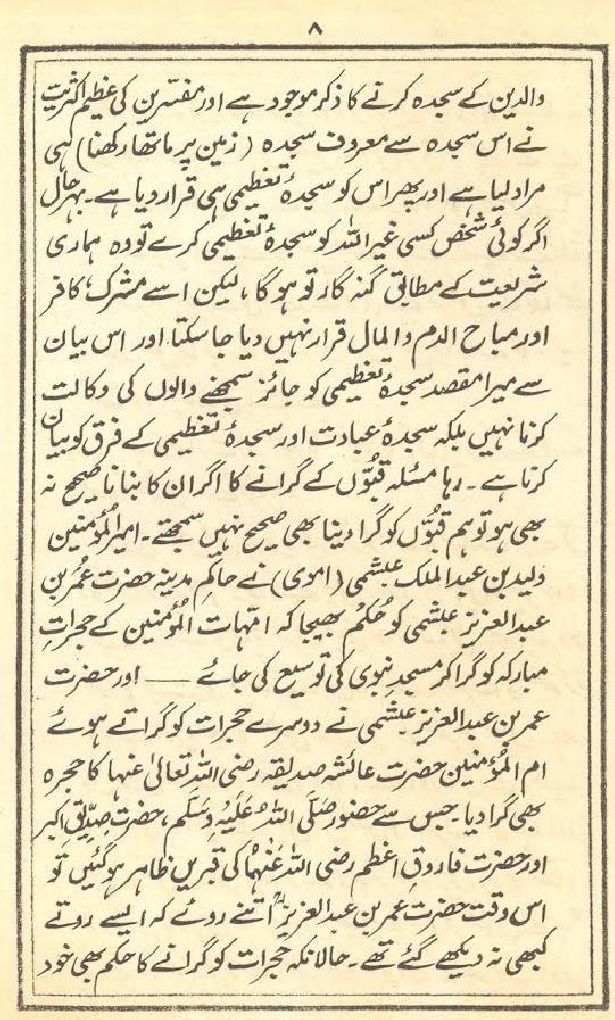 ۸
والدین کے سجدہ کرنے کا ذکر موجود ہے اور مفسّرین کی عظیم اکثریت
نے اس سجدہ سے معروف سجدہ (زمین پر ماتھا رکھنا) ہی
مراد لیا ہے اور پھر اس کو سجدۂ تعظیمی ہی قرار دیا ہے۔ بہرحال
اگر کوئی شخص کسی غیر اللہ کو سجدۂ تعظیمی کرے تو وہ ہماری
شریعت کے مطابق گنہ گار تو ہوگا، لیکن اسے مشرک، کافر
اور مباح الدم والمال قرار نہیں دیا جاسکتا اور اس بیان
سے میرا مقصد سجدۂ تعظیمی کو جائز سمجھنے والوں کی وکالت
کرنا نہیں بلکہ سجدۂ عبادت اور سجدۂ تعظیمی کے فرق کو بیان
کرنا ہے۔ رہا مسئلہ قبّوں کے گرانے کا اگر ان کا بنانا صحیح نہ
بھی ہو تو ہم قبّوں کو گرا دینا بھی صحیح نہیں سمجھتے۔ امیر المُؤمنین
ولید بن عبد الملک عبشمی (اموی) نے حاکمِ مدینہ حضرت عُمر بن
عبد العزیز عبشمی کو حُکم بھیجا کہ امّہات المُؤمنین کے حجراتِ
مبارکہ کو گرا کر مسجدِ نبوی کی توسیع کی جائے —— اور حضرت
عمر بن عبد العزیز عبشمی نے دوسرے حجرات کو گراتے ہوئے
ام المُؤمنین حضرت عائشہ صدیقہ رضی اللہ تعالیٰ عنہا کا حجرہ
بھی گرا دیا۔ جس سے حضور صَلَّی اللہُ عَلَیْہِ وَسَلَّم، حضرت صِدّیقِ اکبر
اور حضرت فاروقِ اعظم رضی اللہ عَنْہُما کی قبریں ظاہر ہوگئیں تو
اس وقت حضرت عمر بن عبد العزیزؒ اتنے روئے کہ ایسے روتے
کبھی نہ دیکھے گئے تھے۔ حالانکہ حجرات کو گرانے کا حکم بھی خود